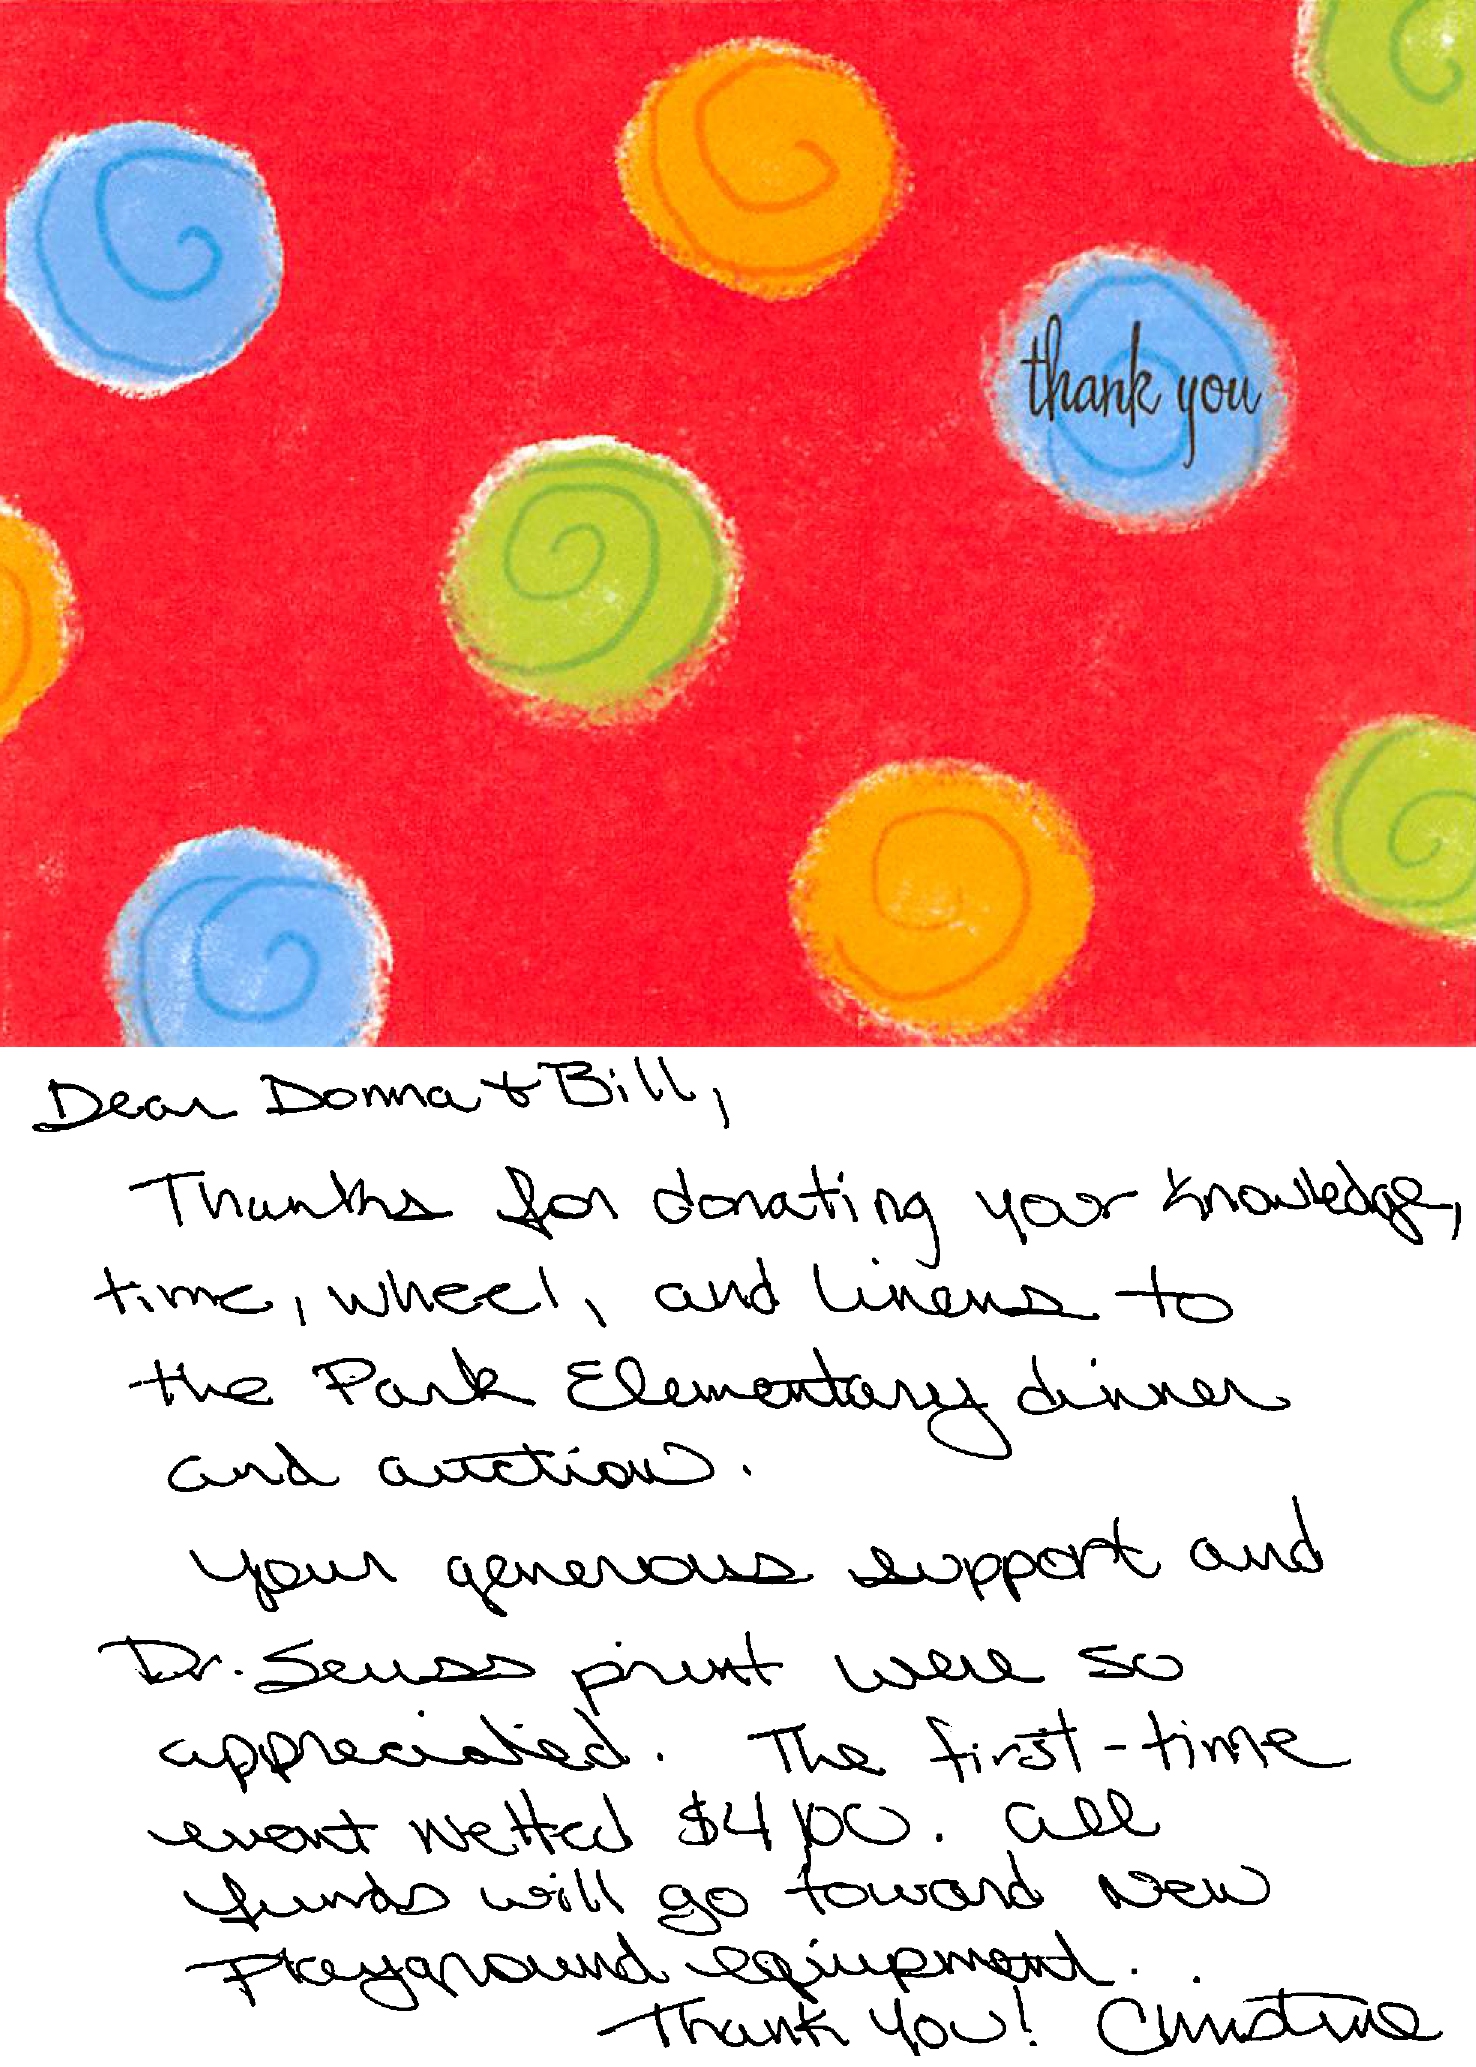 thank you
Dear Donna & Bill,
Thanks for donating your knowledge,
time, wheel, and linens to
the Park Elementary dinner
and auction.
Your generous support and
Dr. Seuss print were so
appreciated. The first-time
event netted $4100. All
funds will go toward new
playground equipment.
Thank you! Christine